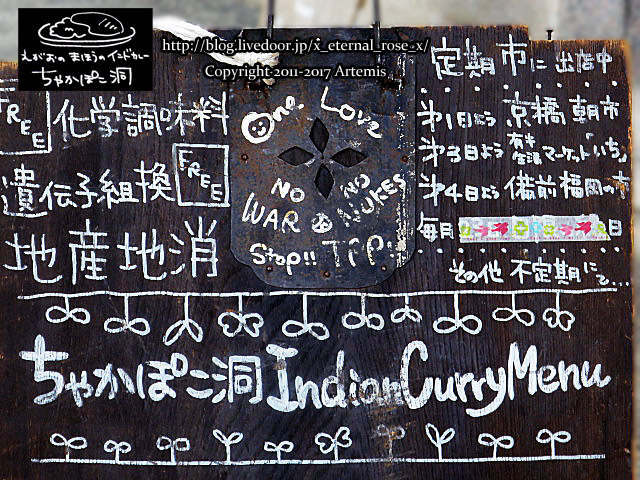 えがおの まほうのインドカレー
ちゃかぽこ洞
http://blog.livedoor.jp/x_eternal_rose_x/
Copyright 2011-2017 Artemis
FREE 化学調味料
遺伝子組換 FREE
地産地消
One Love
NO WAR
NO NUKES
Stop!! TPP!!
定期市に出店中
第1日よう 京橋 朝市
第3日よう 有半生活マーケット「いち」
第4日よう 備前福岡の市
毎月
日
その他 不定期にて...
ちゃかぽこ洞 Indian Curry Menu